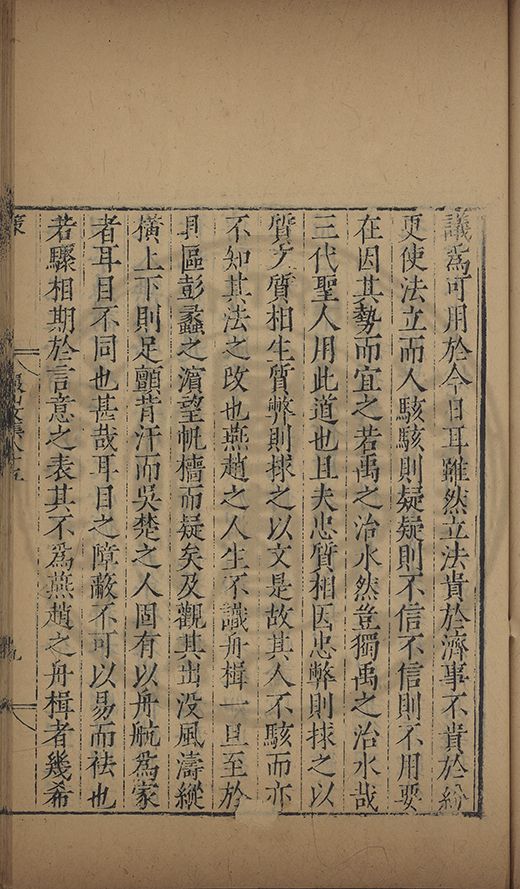 議爲可用於今日耳雖然立法貴於濟事不貴於紛
更使法立而人駭駭則疑疑則不信不信則不用要
在因其勢而宜之若禹之治水然豈獨禹之治水哉
三代聖人用此道也且夫忠質相因忠弊則捄之以
質文質相生質弊則捄之以文是故其人不駭而亦
不知其法之改也燕趙之人生不識舟楫一旦至於
具區彭蠡之濵望帆檣而疑矣及觀其出没風濤縱
橫上下則足顫背汗而吳楚之人固有以舟航爲家
者耳目不同也甚哉耳目之障蔽不可以易而袪也
若驟相期於言意之表其不爲燕趙之舟楫者幾希
策
文集
五
九